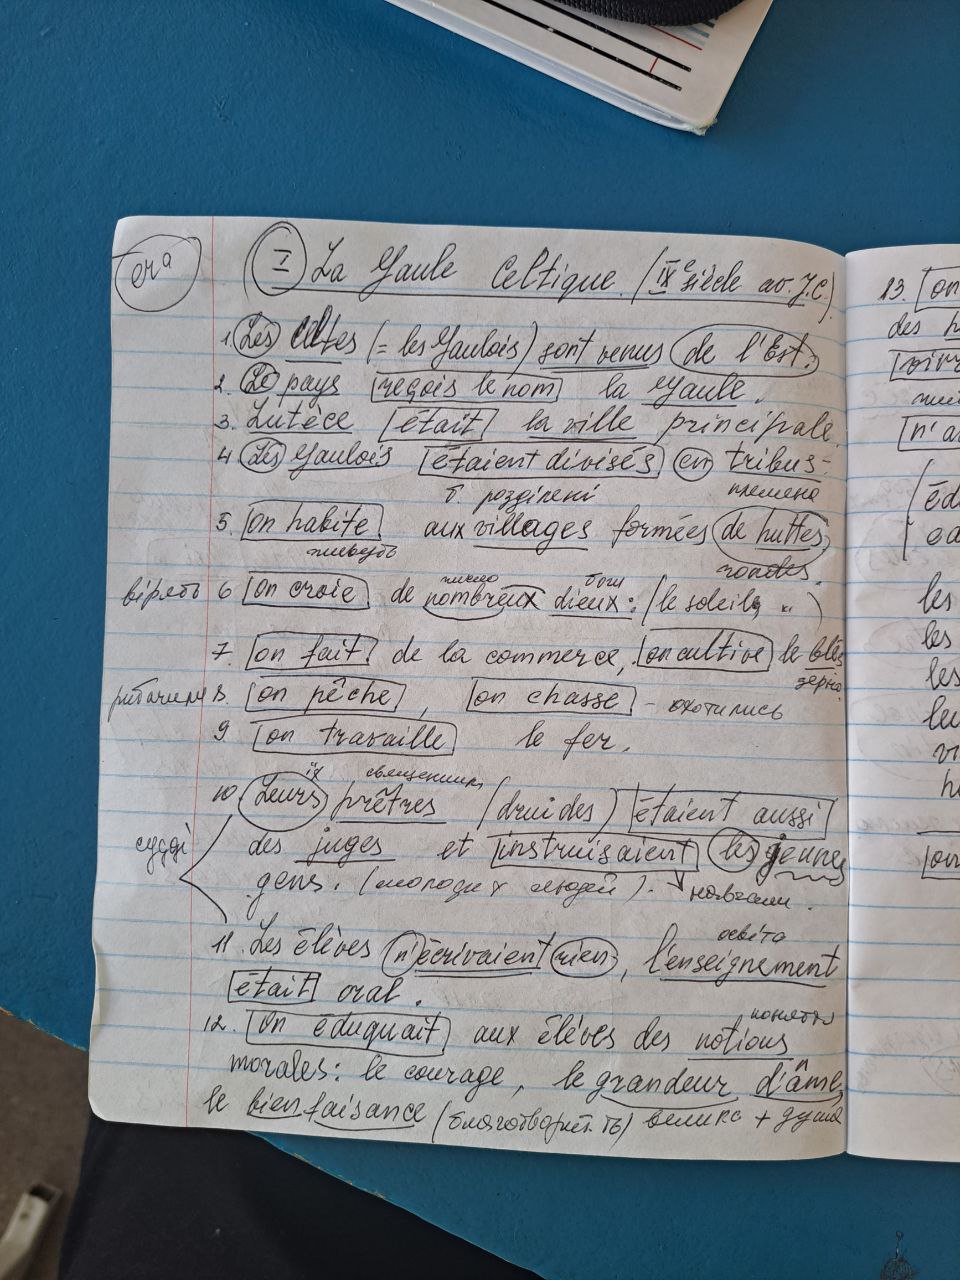 I La Gaule Celtique. (IXe siècle av. J.C.)
1. Les Celtes (= les Gaulois) sont venus de l'Est.
2. Le pays reçois le nom la Gaule.
3. Lutèce était la ville principale.
4 Les Gaulois étaient divisés en tribus-
б. розділені племена
5. on habite aux villages formées de huttes
живуть rondes.
число боги
вірять 6 on croie de nombreux dieux: (le soleil, ..)
7. on fait de la commerce, on cultive le blé,
зерно
рибачили 8. on pêche, on chasse - охотились
9 on travaille le fer.
їх священники
10 Leurs prêtres (druides) étaient aussi
судді des juges et instruisaient les jeunes
gens. (молодих людей). навчали.
освіта
11. Les élèves n'écrivaient rien, l'enseignement
était oral.
поняття
12. On éduquait aux élèves des notions
morales: le courage, le grandeur d'âme,
le bienfaisance (благотворит.ть) велика + душа
13. on
des
n'a
les
les
les